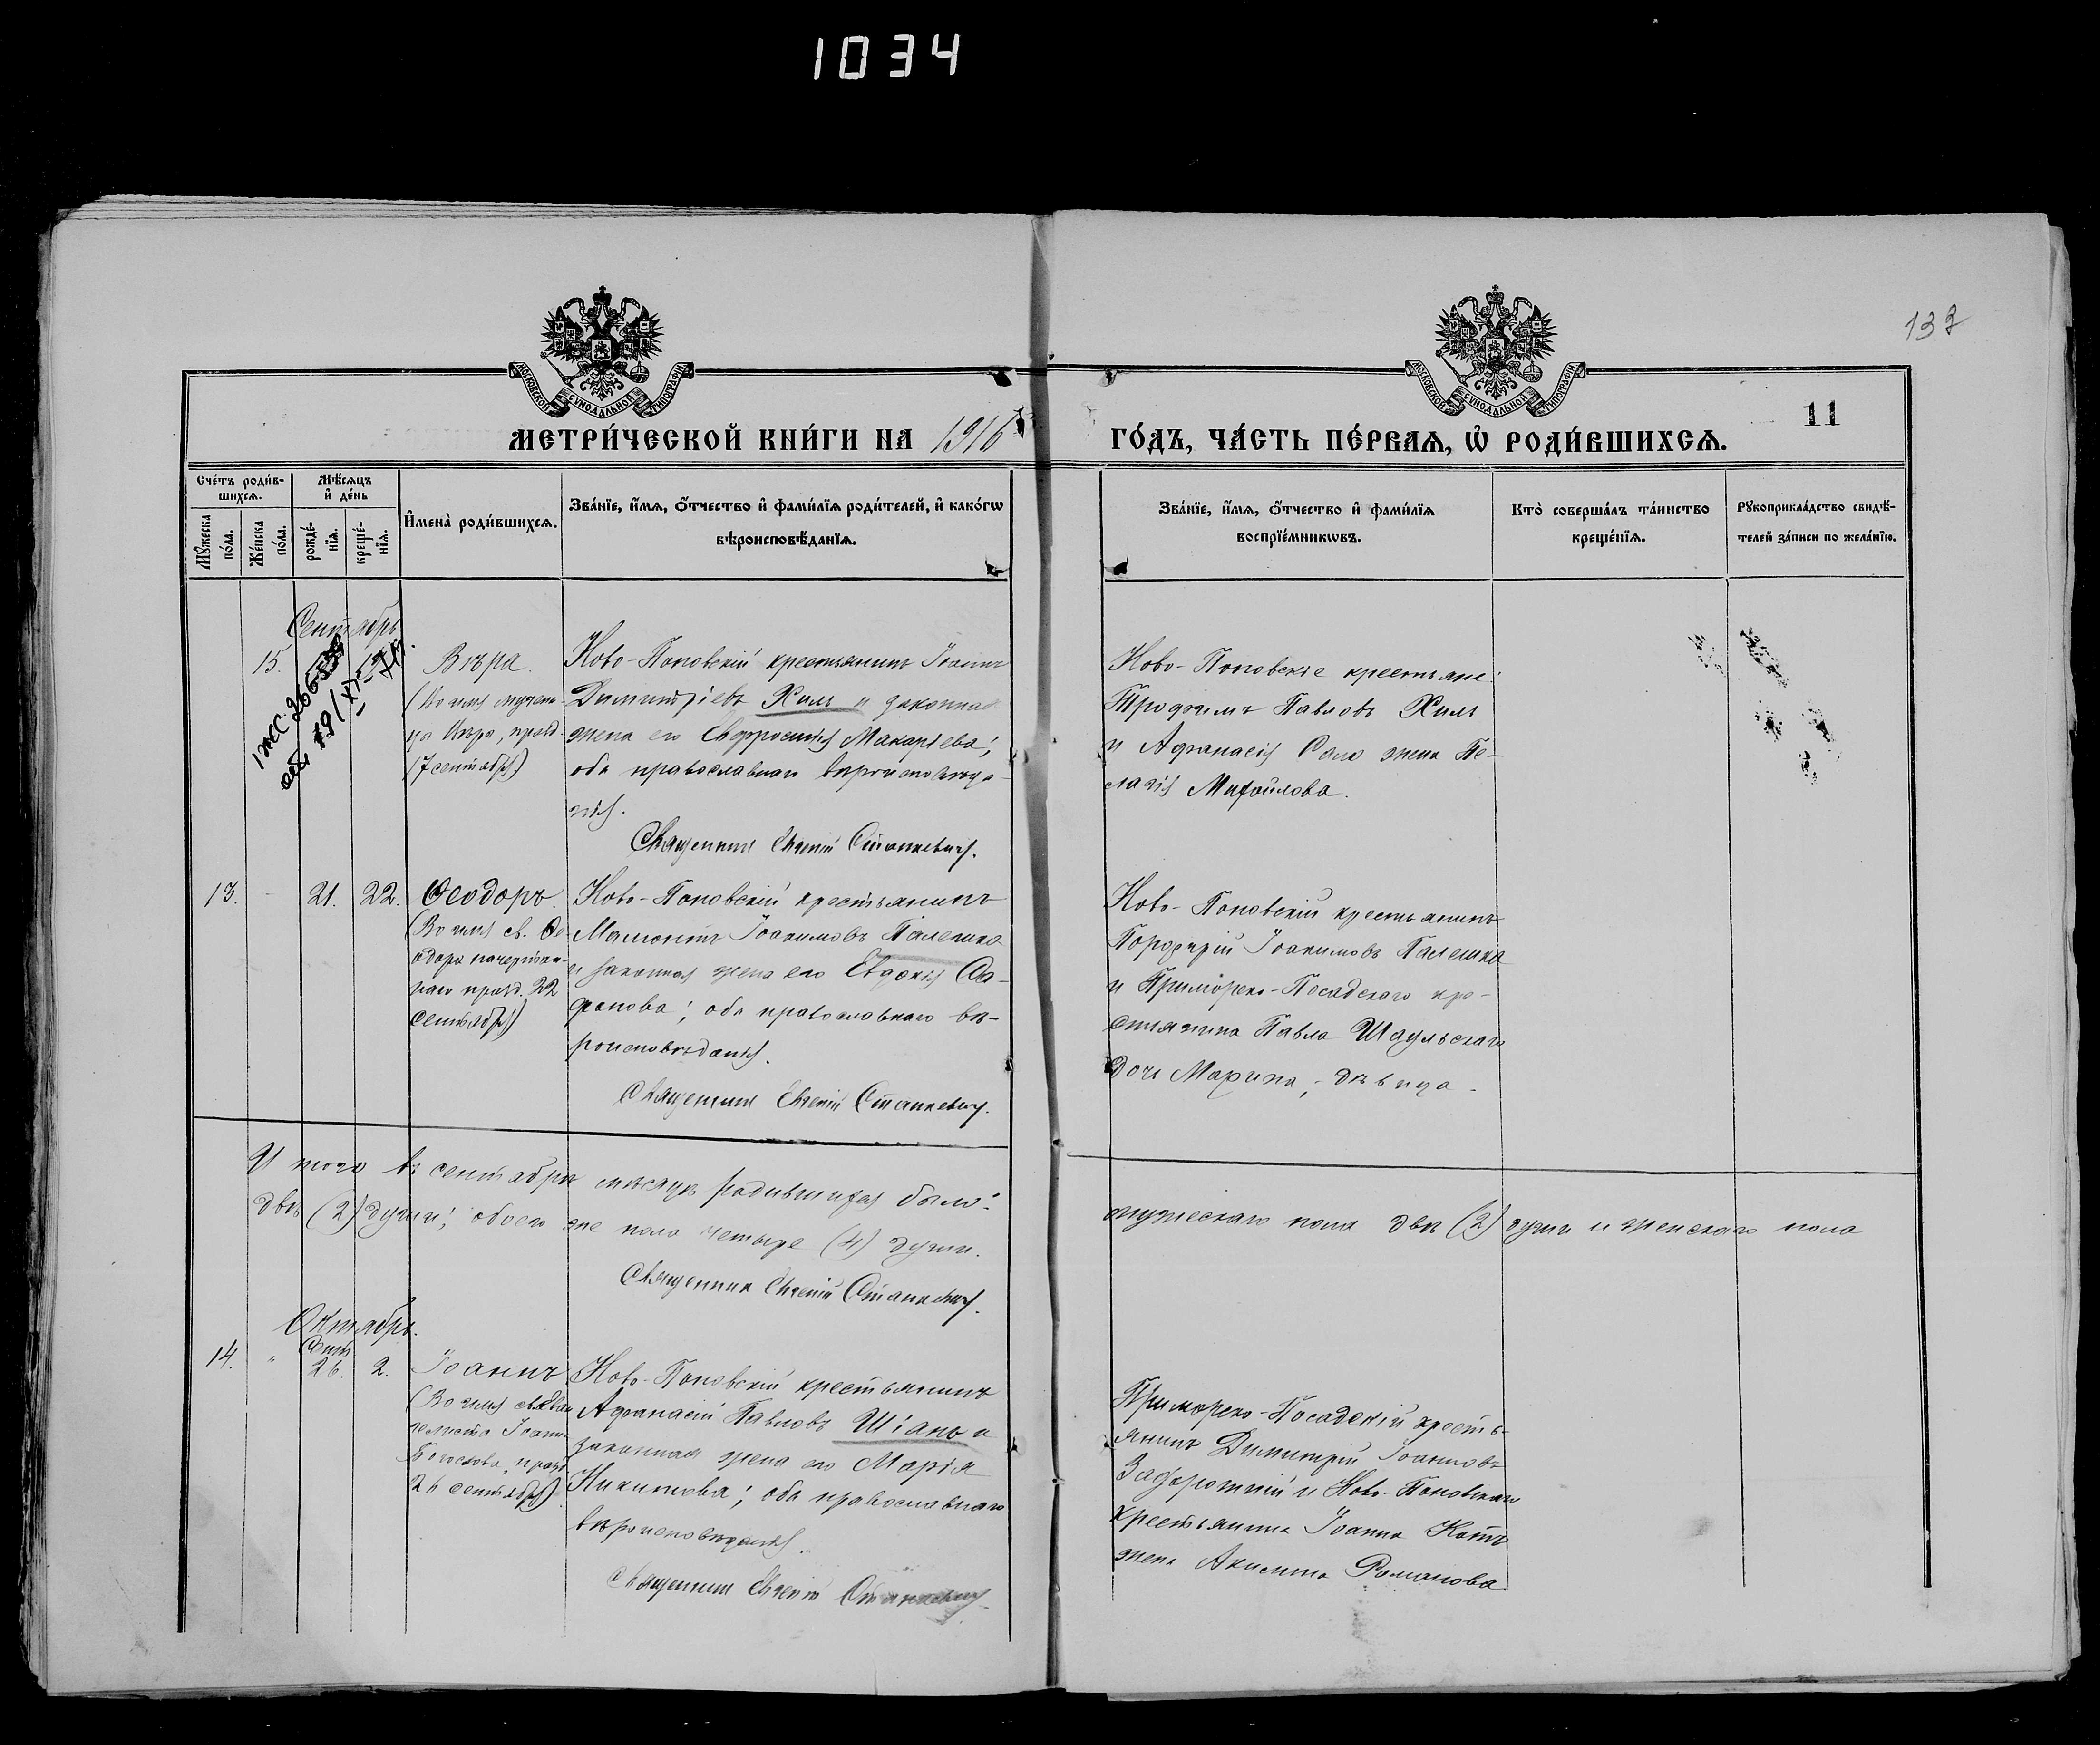 1034
133
МОСКОВСКОЙ СУНОДАЛЬНОЙ ТИПОГРАФІИ
МОСКОВСКОЙ СУНОДАЛЬНОЙ ТИПОГРАФІИ
11
МЕТРИ́ЧЕСКОЙ КНИ́ГИ НА 1916
ГО́ДЪ, ЧА́СТЬ ПЕ́РВАѦ, Ѡ҆ РОДИ́ВШИХСѦ.
Сче́тъ роди́в-
шихсѧ.
Мꙋ́жеска по́ла.
Же́нска по́ла.
Мѣ́сѧцъ
и҆ де́нь
рожде́-
нїѧ.
креще́-
нїѧ.
И҆мена̀ роди́вшихсѧ.
Зва́нїе, и҆́мѧ, ѻ҆́тчество и҆ фами́лїѧ роди́телей, и҆ како́гѡ
вѣроисповѣ́данїѧ.
Зва́нїе, и҆́мѧ, ѻ҆́тчество и҆ фами́лїѧ
воспрїе́мникѡвъ.
Кто̀ соверша́лъ та́инство
креще́нїѧ.
Рꙋкоприкла́дство свидѣ́-
телей за́писи по жела́нїю.
Сентябрь
15.
Вѣра.
(Во имя мучени-
цы Вѣры, празд.
17 сентября)
Ново-Поповскій крестьянинъ Іоаннъ
Димитріевъ Хиль и законная
жена его Евфросинія Макаріева;
оба православнаго вѣроисповѣда-
нія.
Священникъ Евгеній Станкевичъ.
Ново-Поповскіе крестьяне:
Трофимъ Павловъ Хиль
и Афанасія Сало жена Пе-
лагія Михайлова.
13.
21.
22.
Ѳеодоръ.
(Во имя св. Ѳе-
одора начертан-
наго празд. 22
сентября)
Ново-Поповскій крестьянинъ
Мамонтъ Іоакимовъ Паленка
и законная жена его Евдокія Са-
фонова; оба православнаго вѣ-
роисповѣданія.
Священникъ Евгеній Станкевичъ.
Ново-Поповскій крестьянинъ
Порфирій Іоакимовъ Паленка
и Приморско-Посадскаго кре-
стьянина Павла Шаульскаго
дочь Марина, дѣвица.
И того въ сентябрѣ мѣсяцѣ родившихся было:
мужескаго пола двѣ (2) души и женскаго пола
двѣ (2) души; обоего же пола четыре (4) души.
Священникъ Евгеній Станкевичъ.
Октябрь.
14.
"
Сент.
26.
2.
Іоаннъ
(Во имя св. Еван-
гелиста Іоанна
Богослова, празд.
26 сентября)
Ново-Поповскій крестьянинъ
Афанасій Павловъ Шіанъ и
законная жена его Марія
Никитова; оба православнаго
вѣроисповѣданія.
Священникъ Евгеній Станкевичъ.
Приморско-Посадскій кресть-
янинъ Димитрій Іоанновъ
Задорожній и Ново-Поповскаго
крестьянина Іоанна Котъ
жена Акилина Романова.